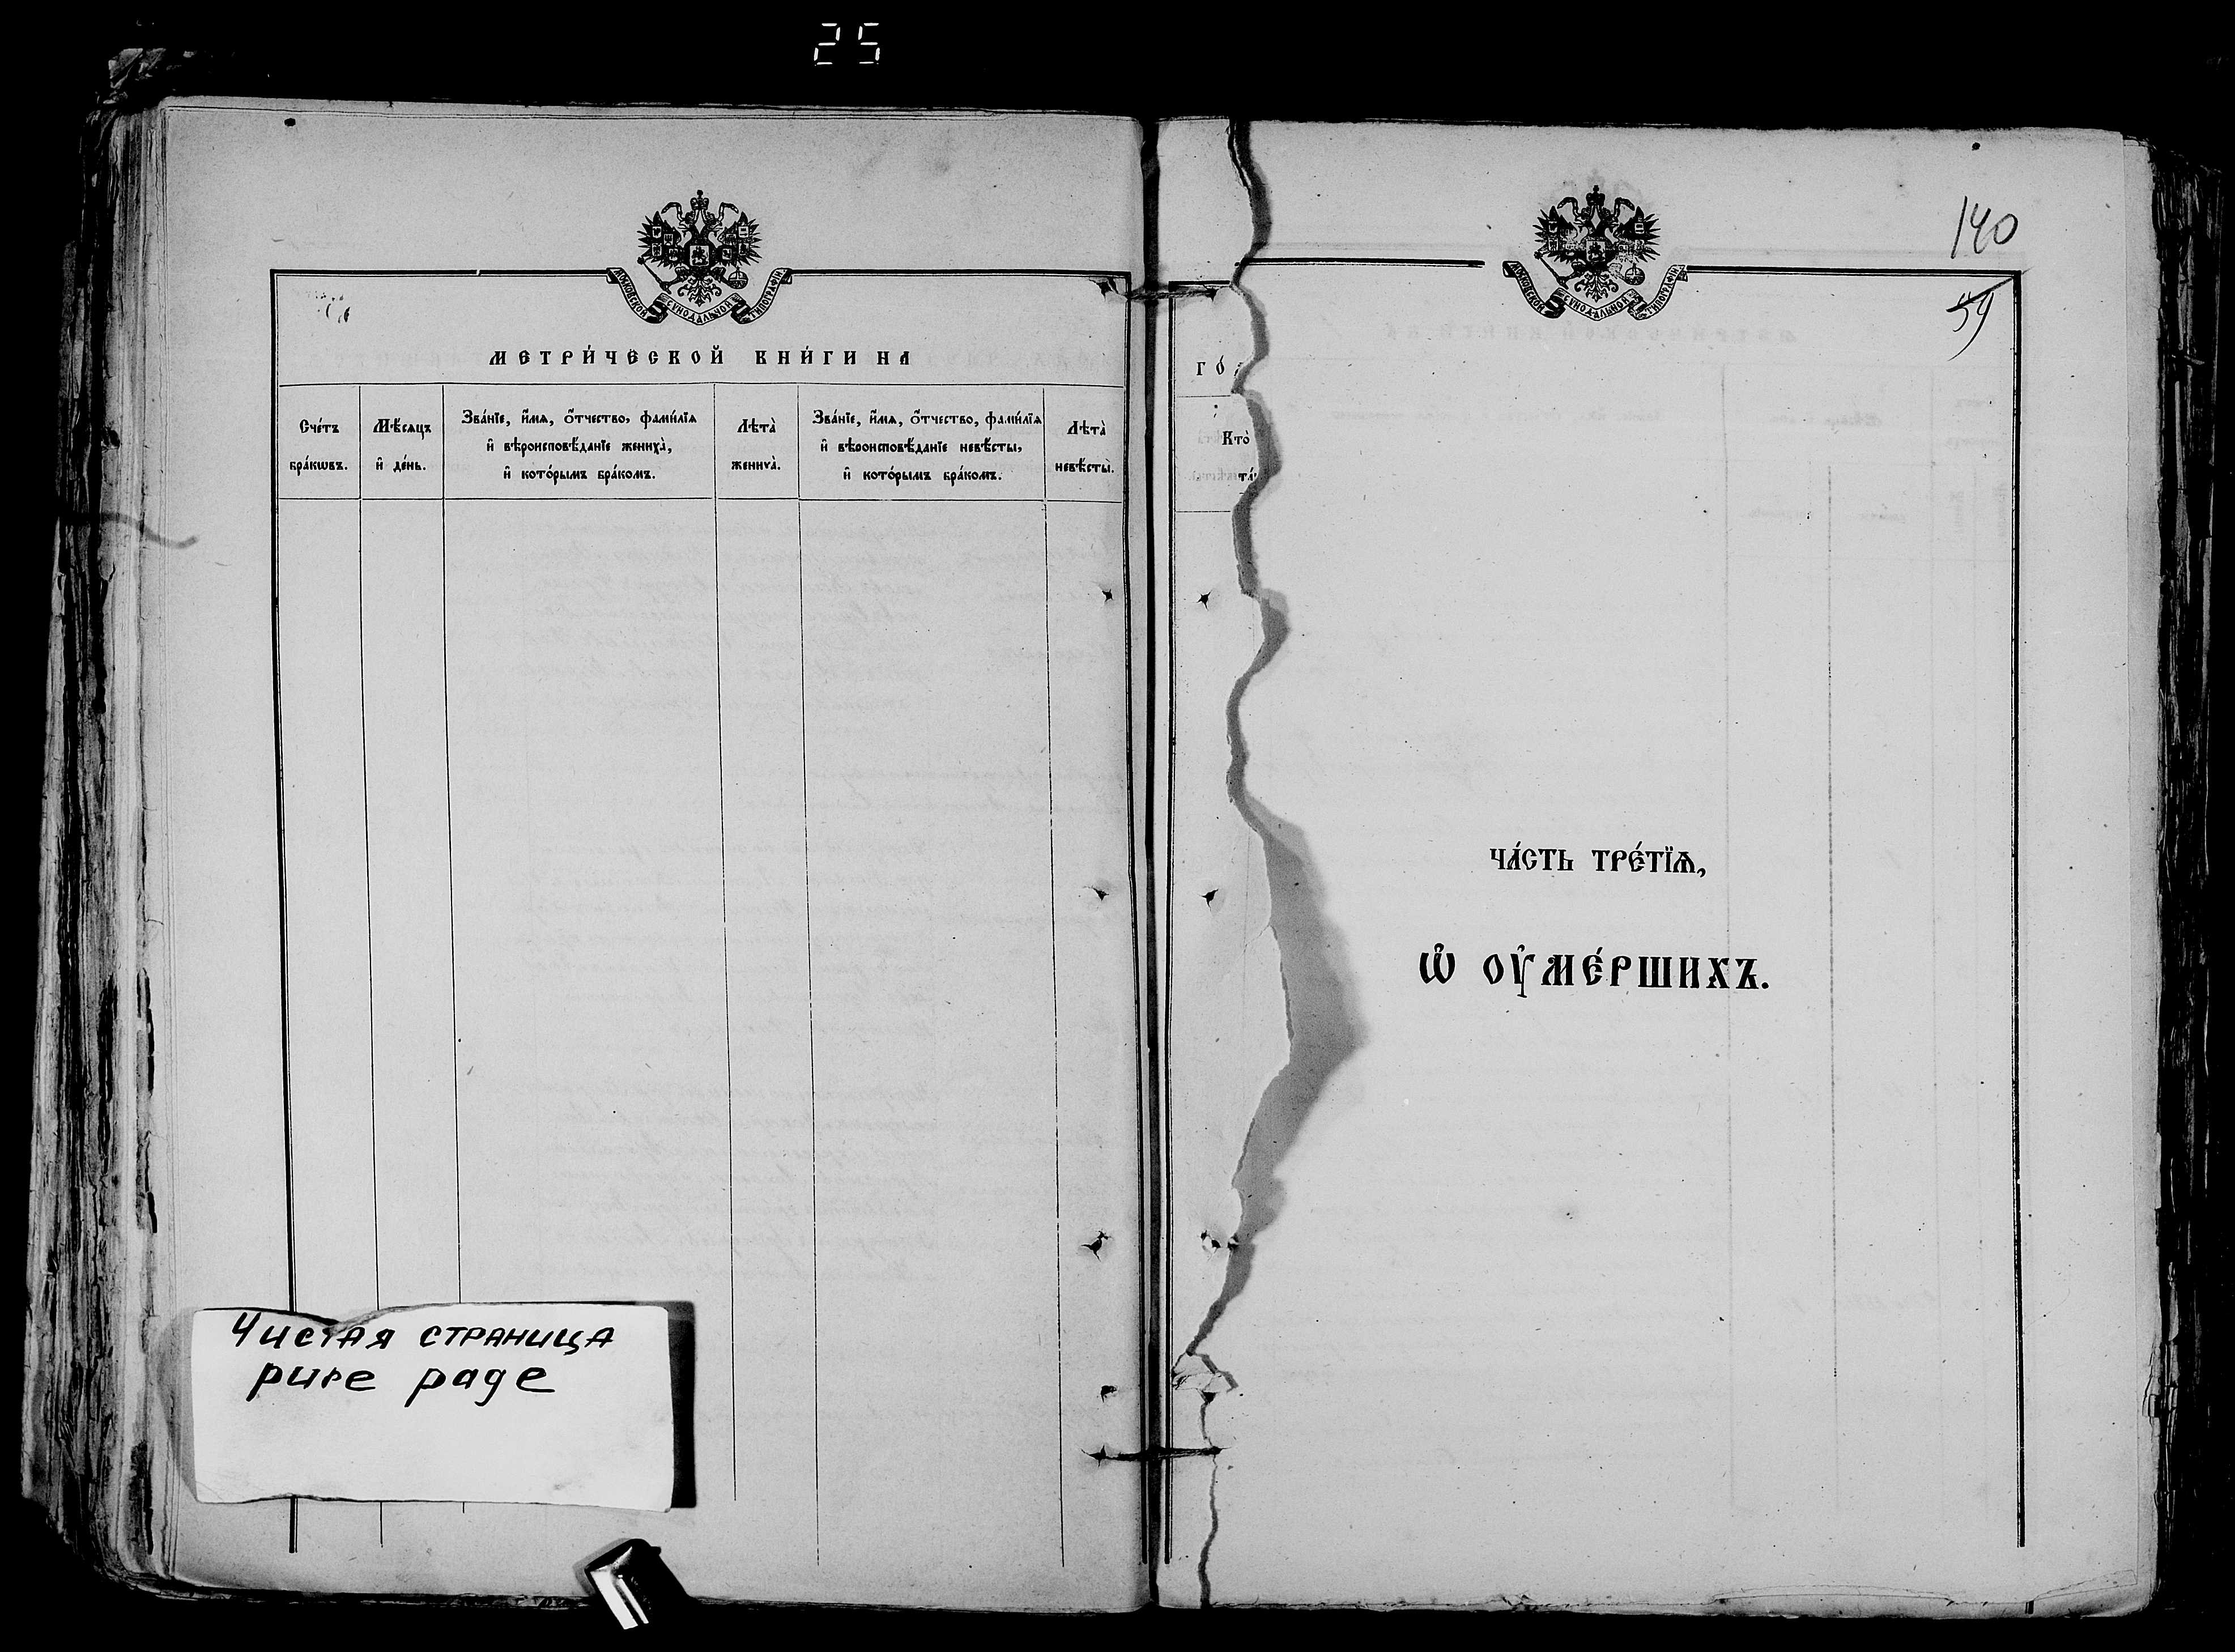 25
МОСКОВСКОЙ СѴНОДАЛЬНОЙ ТИПОГРАФІИ
МЕТРИ́ЧЕСКОЙ КНИ́ГИ НА
Сче́тъ бра́кωвъ.
Мѣ́сяцъ и҆ де́нь.
Зва́нїе, и҆́мѧ, ѻ҆́тчество, фами́лїѧ
и҆ вѣроисповѣ́данїе жениха̀,
и҆ кото́рымъ бра́комъ.
Лѣта̀ жениха̀.
Зва́нїе, и҆́мѧ, ѻ҆́тчество, фами́лїѧ
и҆ вѣроисповѣ́данїе невѣ́сты,
и҆ кото́рымъ бра́комъ.
Лѣта̀ невѣ́сты.
Чистая страница
pure page
140
59
МОСКОВСКОЙ СѴНОДАЛЬНОЙ ТИПОГРАФІИ
ГО́
Кто̀
та
ЧА́СТЬ ТРЕ́ТЇѦ,
Ѡ҆ ОУ҆МЕ́РШИХЪ.